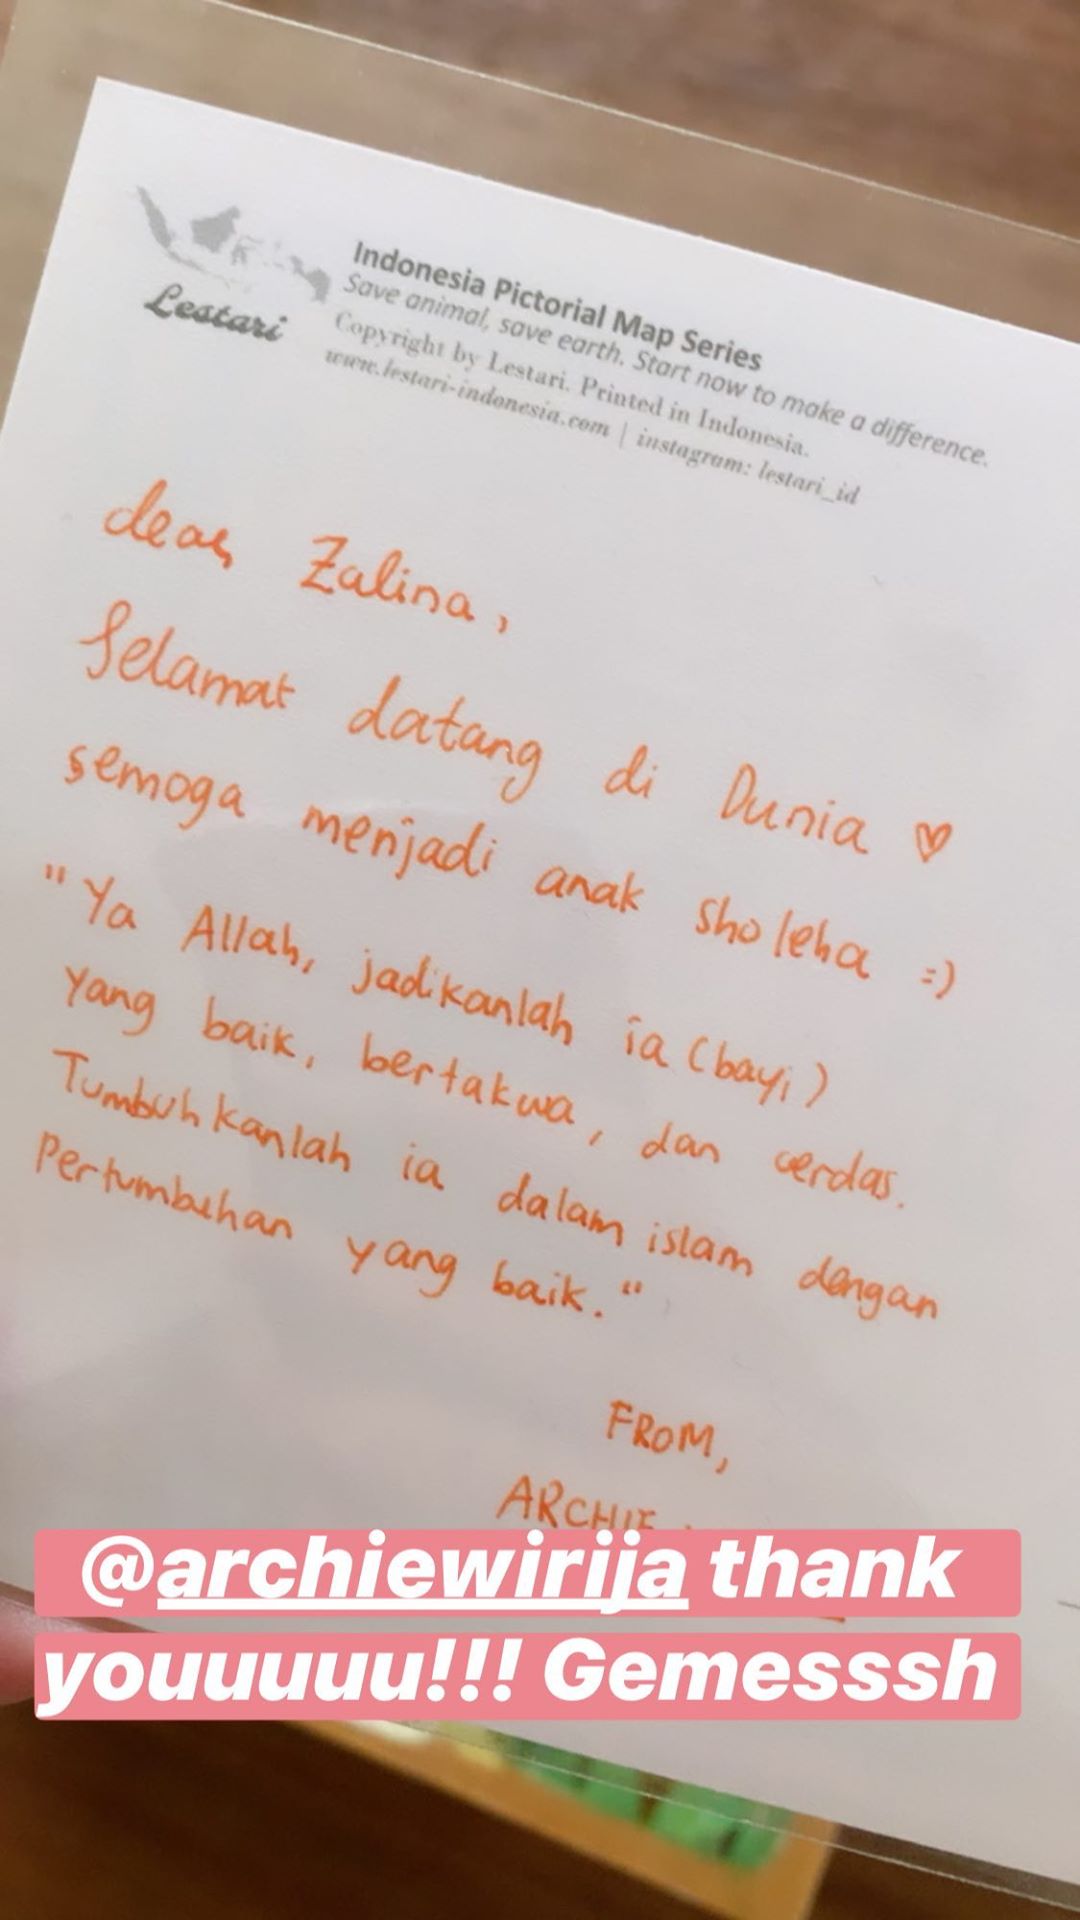 Lestari
Indonesia Pictorial Map Series
Save animal, save earth. Start now to make a difference.
Copyright by Lestari. Printed in Indonesia.
www.lestari-indonesia.com | instagram: lestari_id
dear Zalina,
Selamat datang di Dunia ♡
semoga menjadi anak sholeha :)
"Ya Allah, jadikanlah ia (bayi)
yang baik, bertakwa, dan cerdas.
Tumbuhkanlah ia dalam islam dengan
Pertumbuhan yang baik."
FROM,
ARCHIE
@archiewirija thank
youuuuuu!!! Gemesssh